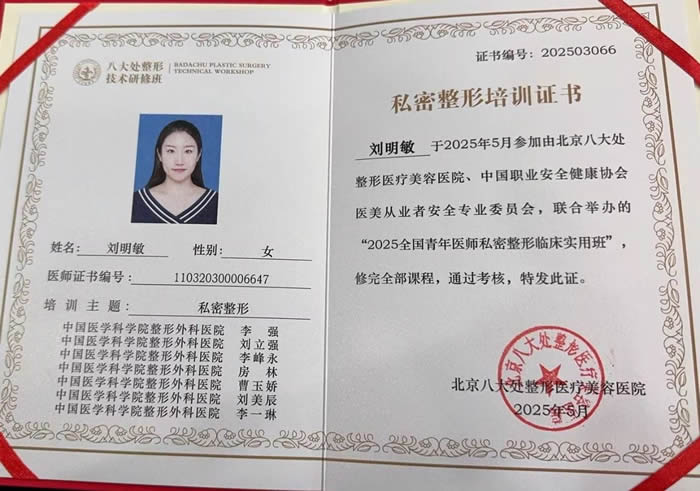 八大处整形
技术研修班
BADACHU PLASTIC SURGERY
TECHNICAL WORKSHOP
姓名： 刘明敏 性别： 女
医师证书编号： 110320300006647
培训主题： 私密整形
中国医学科学院整形外科医院 李 强
中国医学科学院整形外科医院 刘立强
中国医学科学院整形外科医院 李峰永
中国医学科学院整形外科医院 房 林
中国医学科学院整形外科医院 曹玉娇
中国医学科学院整形外科医院 刘美辰
中国医学科学院整形外科医院 李一琳
证书编号：202503066
私密整形培训证书
刘明敏 于2025年5月参加由北京八大处
整形医疗美容医院、中国职业安全健康协会
医美从业者安全专业委员会，联合举办的
“2025全国青年医师私密整形临床实用班”，
修完全部课程，通过考核，特发此证。
北京八大处整形医疗
北京八大处整形医疗美容医院
2025年5月